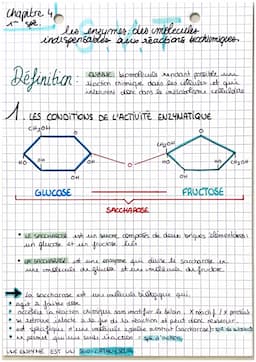 Chapitre 4
1ère spé.
Les enzymes, des molécules
indispensables aux réactions biochimiques.
Définition : ENZYME : biomolécule rendant possible une
réaction chimique dans les cellules et qui
intervient donc dans le métabolisme cellulaire
1. LES CONDITIONS DE L'ACTIVITÉ ENZYMATIQUE
CH2OH
O
HO
OH
OH
O
CH2OH
O
HO
OH
CH2OH
GLUCOSE
FRUCTOSE
SACCHAROSE
• LE SACCHAROSE est un sucre, composés de deux briques élémentaires :
un glucose et un fructose liés
• LA SACCHARASE est une enzyme qui divise le saccharose en
une molécule de glucose et une molécule de fructose.
→ La saccharase est une molécule biologique qui :
• agit à faible dose
• accélère la réaction chimique sans modifier le bilan :
• se retrouve intacte à la fin de la réaction et peut donc resservir
• est spécifique d'une molécule appelée substrat (saccharose)
• ne permet qu'une seule réaction
UNE ENZYME EST UN BIOCATALYSEUR